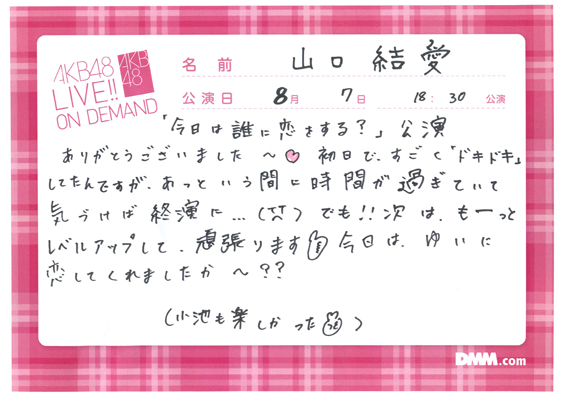 AKB48
LIVE!!
ON DEMAND
AKB
48
名前 山口 結愛
公演日 8月 7日 18:30 公演
「今日は誰に恋をする?」公演
ありがとうございました〜♡ 初日で、すごく「ドキドキ」
してたんですが、あっという間に時間が過ぎていて
気づけば終演に…(><) でも!!次は、もーっと
レベルアップして、頑張ります 今日は、ゆいに
恋してくれましたか〜??
(小池も楽しかった)
DMM.com